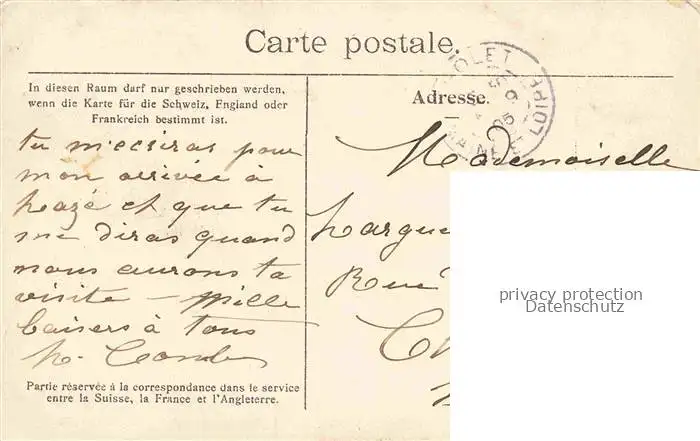 Carte postale.
In diesen Raum darf nur geschrieben werden,
wenn die Karte für die Schweiz, England oder
Frankreich bestimmt ist.
Adresse.
tu m'ecriras pour
mon arrivée à
Lazé et que tu
me diras quand
nous aurons ta
visite – Mille
baisers à tous
Mademoiselle
Largue
Rue
privacy protection
Datenschutz
Partie réservée à la correspondance dans le service
entre la Suisse, la France et l'Angleterre.
MAINE
LOIRE